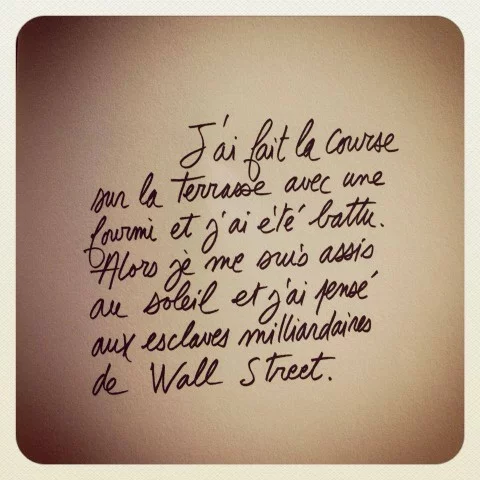 J'ai fait la course
sur la terrasse avec une
fourmi et j'ai été battu.
Alors je me suis assis
au soleil et j'ai pensé
aux esclaves milliardaires
de Wall Street.